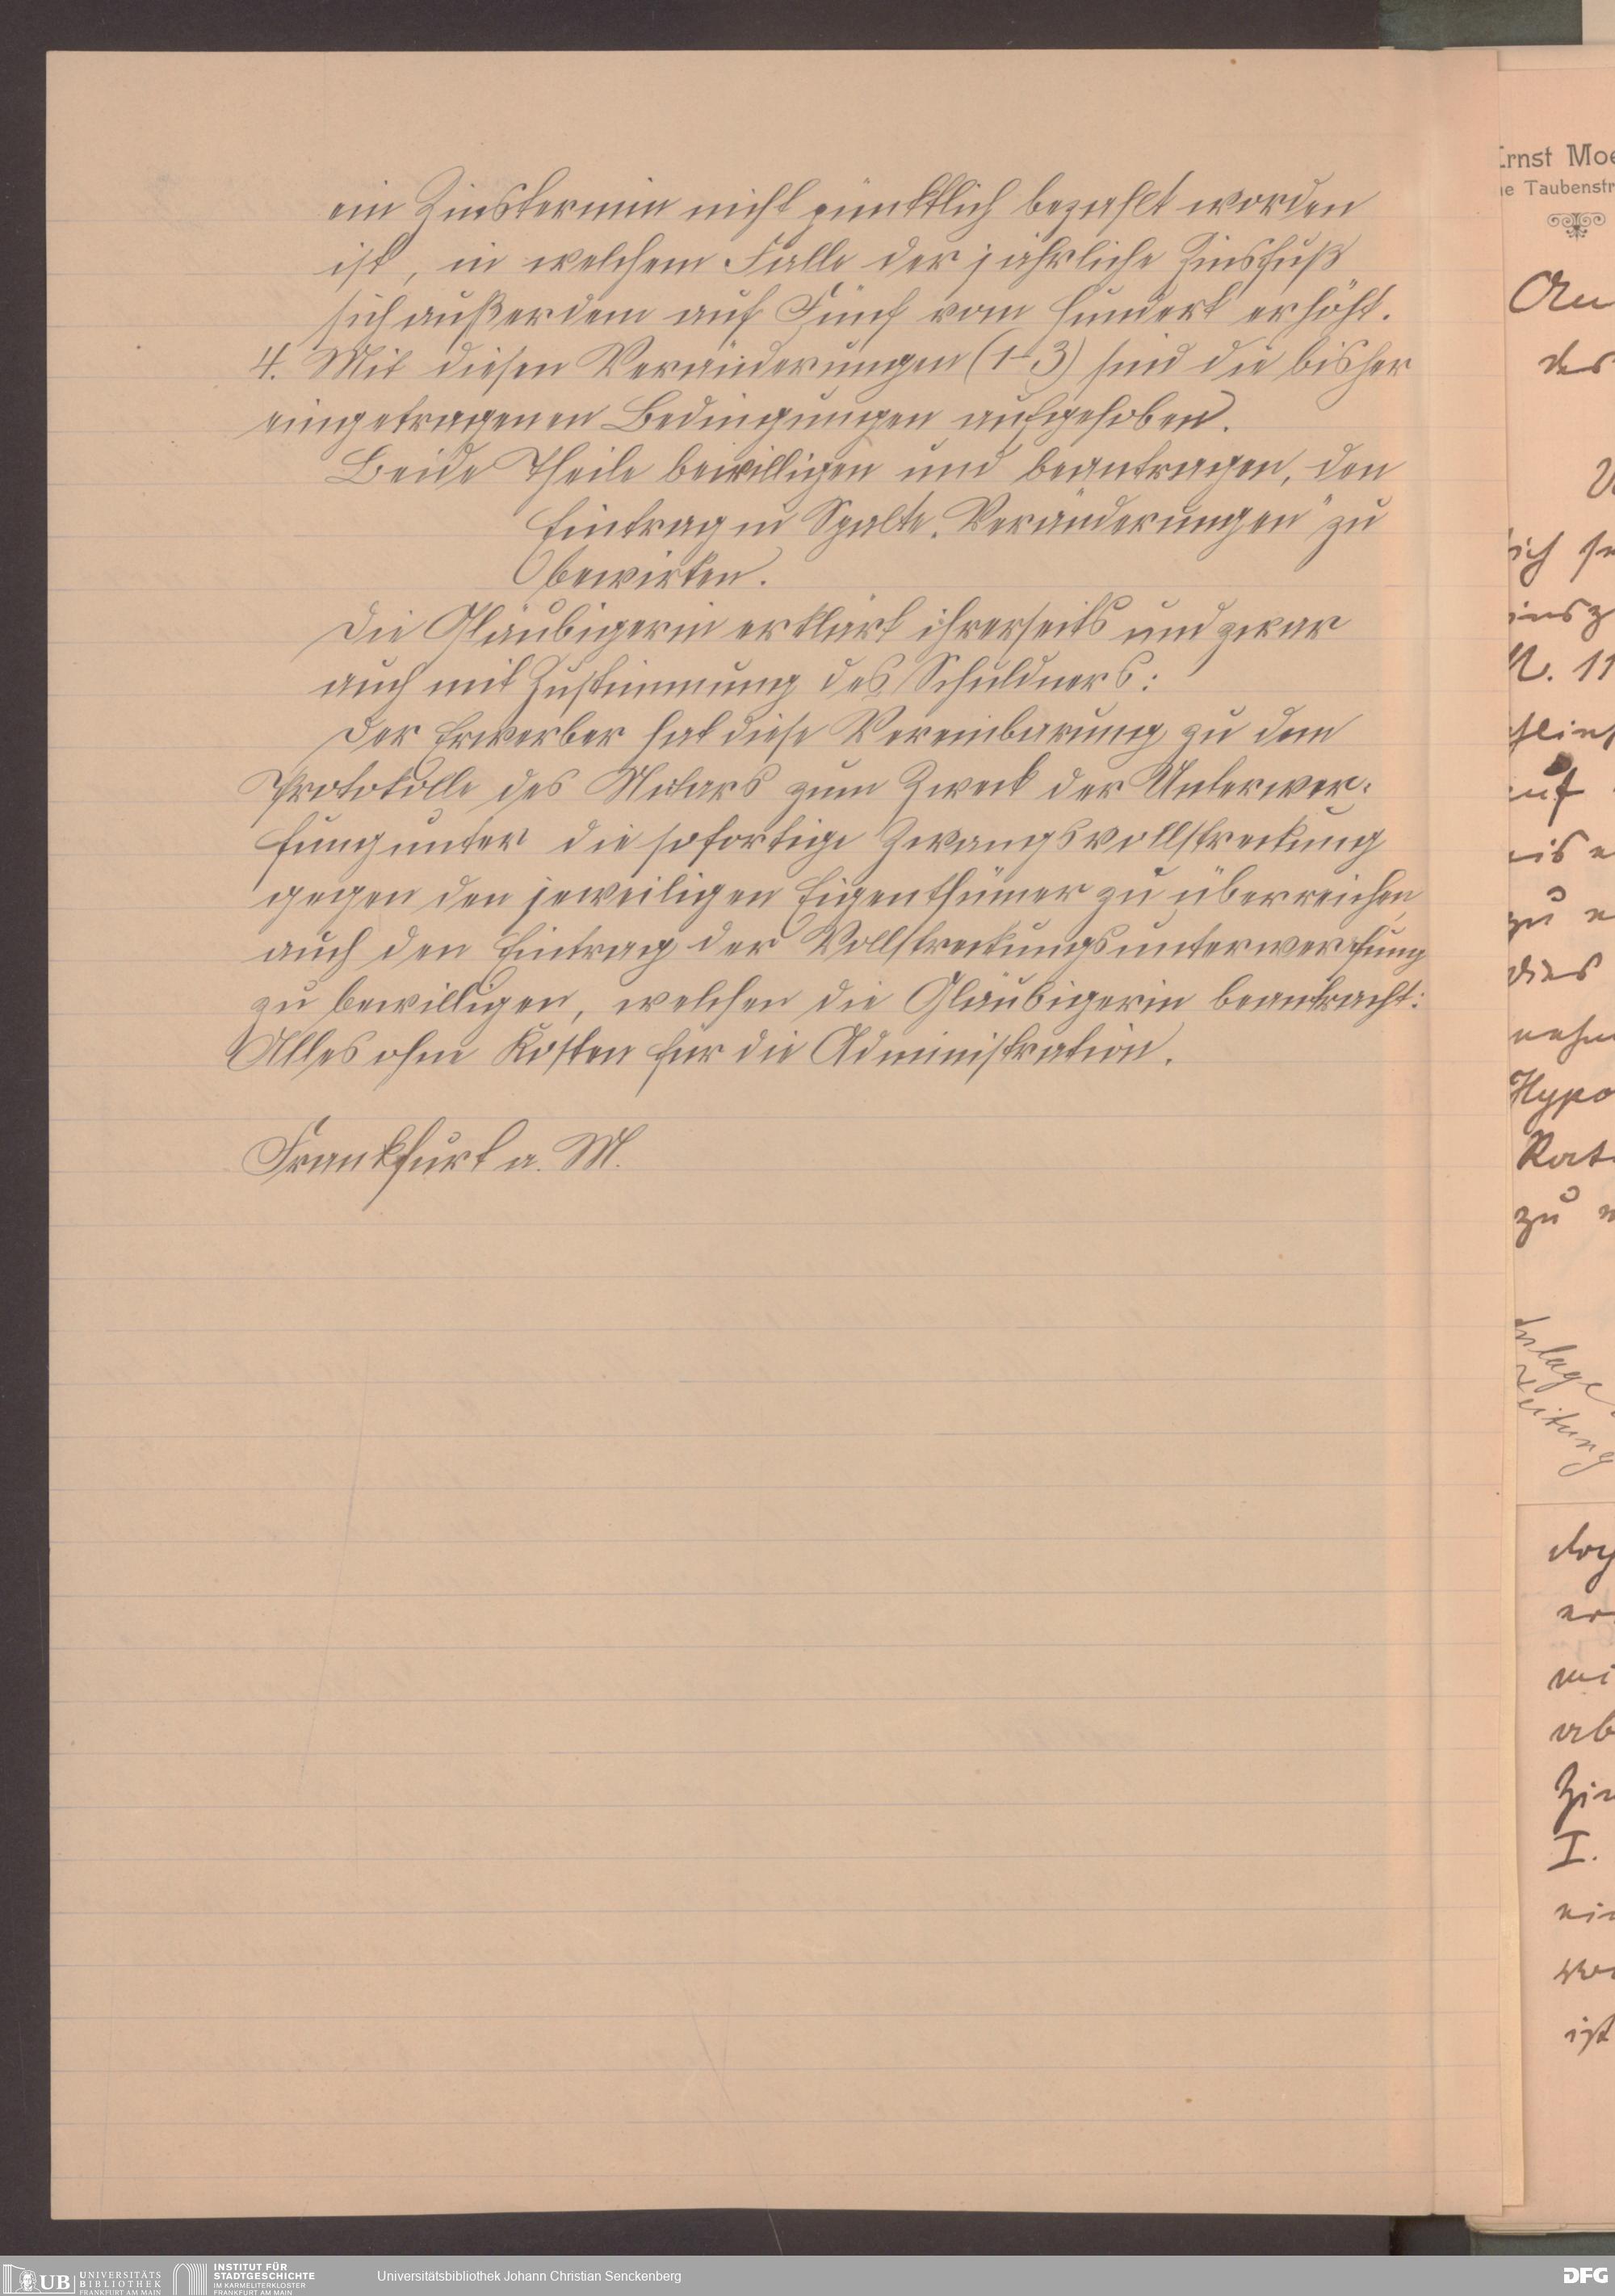 ein Zinstermin nicht pünktlich bezahlt worden
ist, in welchem Falle der jährliche Zinsfuß
sich außerdem auf Fünf vom Hundert erhöht.
4. Mit diesen Veränderungen (1-3) sind die bisher
eingetragenen Bedingungen aufgehoben.
Beide Theile bewilligen und beantragen, den
Eintrag in Spalte „Veränderungen" zu
bewirken.
Die Gläubigerin erklärt ihrerseits und zwar
auch mit Zustimmung des Schuldners:
Der Erwerber hat diese Vereinbarung zu dem
Protokolle des Notars zum Zweck der Unterwer-
fung unter die sofortige Zwangsvollstreckung
gegen den jeweiligen Eigenthümer zu überreichen,
auch den Eintrag der Vollstreckungsunterwerfung
zu bewilligen, welchen die Gläubigerin beantracht:
Alles ohne Kosten für die Administration.
Frankfurt a. M.
Ernst Moe
ne Taubenstr
An
des
ich
N. 11
auf
zu
dies
Hypo
Rat
zu
Anlage
Zeitung
er
mi
ab
Zin
I.
ist
UB UNIVERSITÄTS
BIBLIOTHEK
FRANKFURT AM MAIN
INSTITUT FÜR
STADTGESCHICHTE
IM KARMELITERKLOSTER
FRANKFURT AM MAIN
Universitätsbibliothek Johann Christian Senckenberg
DFG